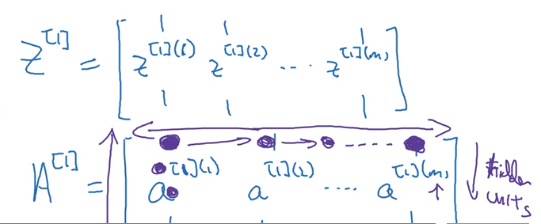 Z^[1] = [ z^[1](1) z^[1](2) ... z^[1](m) ]
A^[1] = [ a^[1](1) a^[1](2) .... a^[1](m) ]
hidden
units